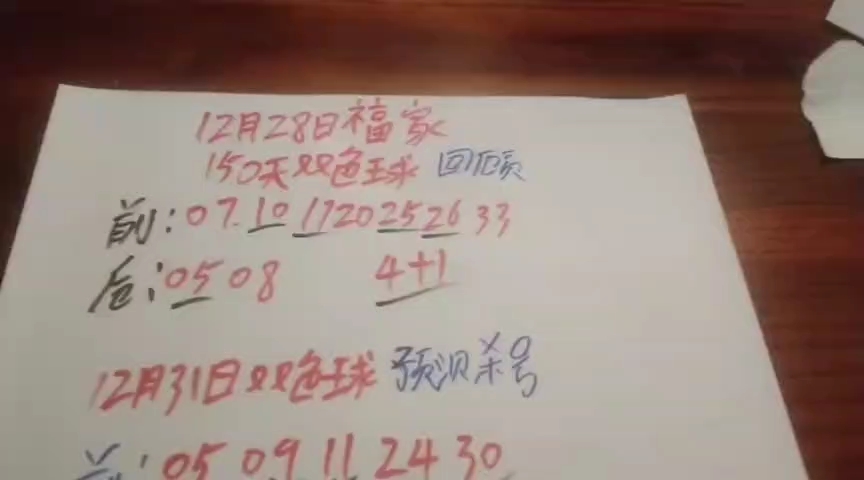 12月28日福家
150天双色球 回顾
前:07.10 17 20 25 26 33
后:05 08 4+1
12月31日双色球 预测杀号
前:05 09 11 24 30